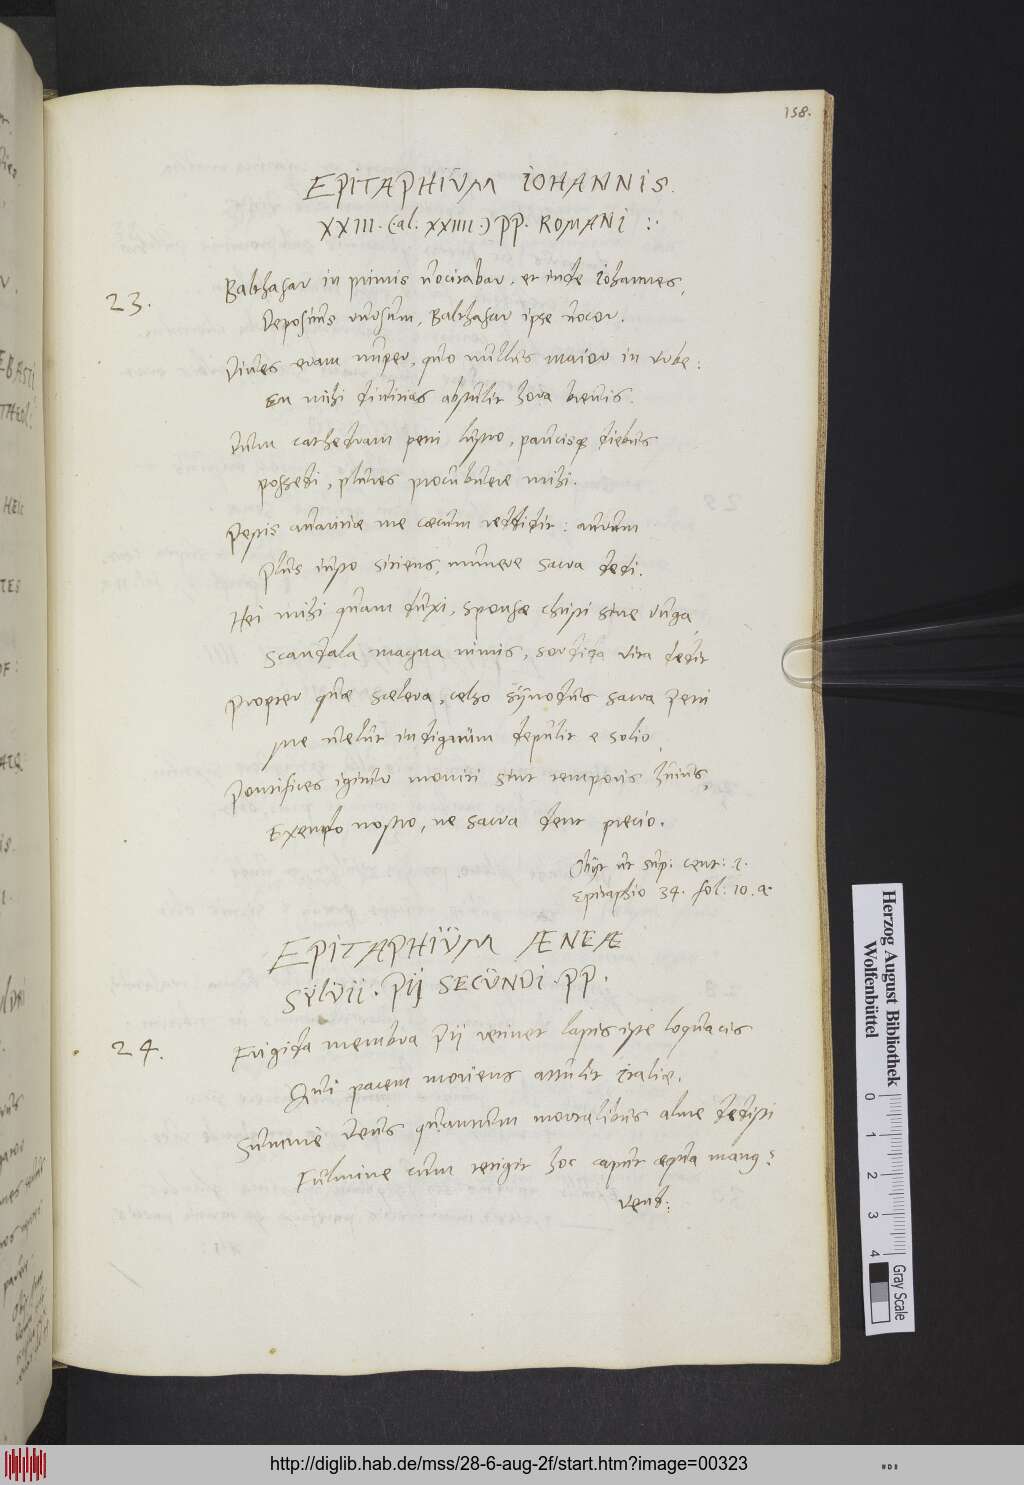 158.
EPITAPHIUM IOHANNIS
XXIII. (al. XXIIII.) PP. ROMANI :·
23. Balthasar in primis vocitabar, et inde Iohannes,
Depositus rursum, Balthasar ipse vocor.
Dives eram nuper, quo nullus maior in urbe:
En mihi divitias abstulit hora brevis.
Dum cathedram Petri lustro, paucisque diebus
possedi, plures procubuere mihi.
Pestis avaritiæ me cæcum reddidit: aurum
Plus iusto sitiens, munere sacra dedi.
Hei mihi quam duxi, sponsæ Christi sine ruga
Scandala magna nimis, sordida vita dedit
Propter quæ scelera, celso synodus sacra Petri
me velut indignum depulit e solio,
Pontifices igitur moniti sint temporis huius,
Exemplo nostro, ne sacra dent precio.
Obijt ut sup: cent: 2.
Epitaphio 34. fol: 10. a.
EPITAPHIUM ÆNEÆ
SYLVII. PII SECUNDI. PP.
24. Frigida membra Pij retinet lapis iste loquacis
Qui pacem moriens attulit Italiæ.
Summe deus quantum mortalibus alme dedisti
Fulmine cum tetigit hoc caput æqua manus?
Vend:
Herzog August Bibliothek
Wolfenbüttel
0 1 2 3 4
Gray Scale
http://diglib.hab.de/mss/28-6-aug-2f/start.htm?image=00323